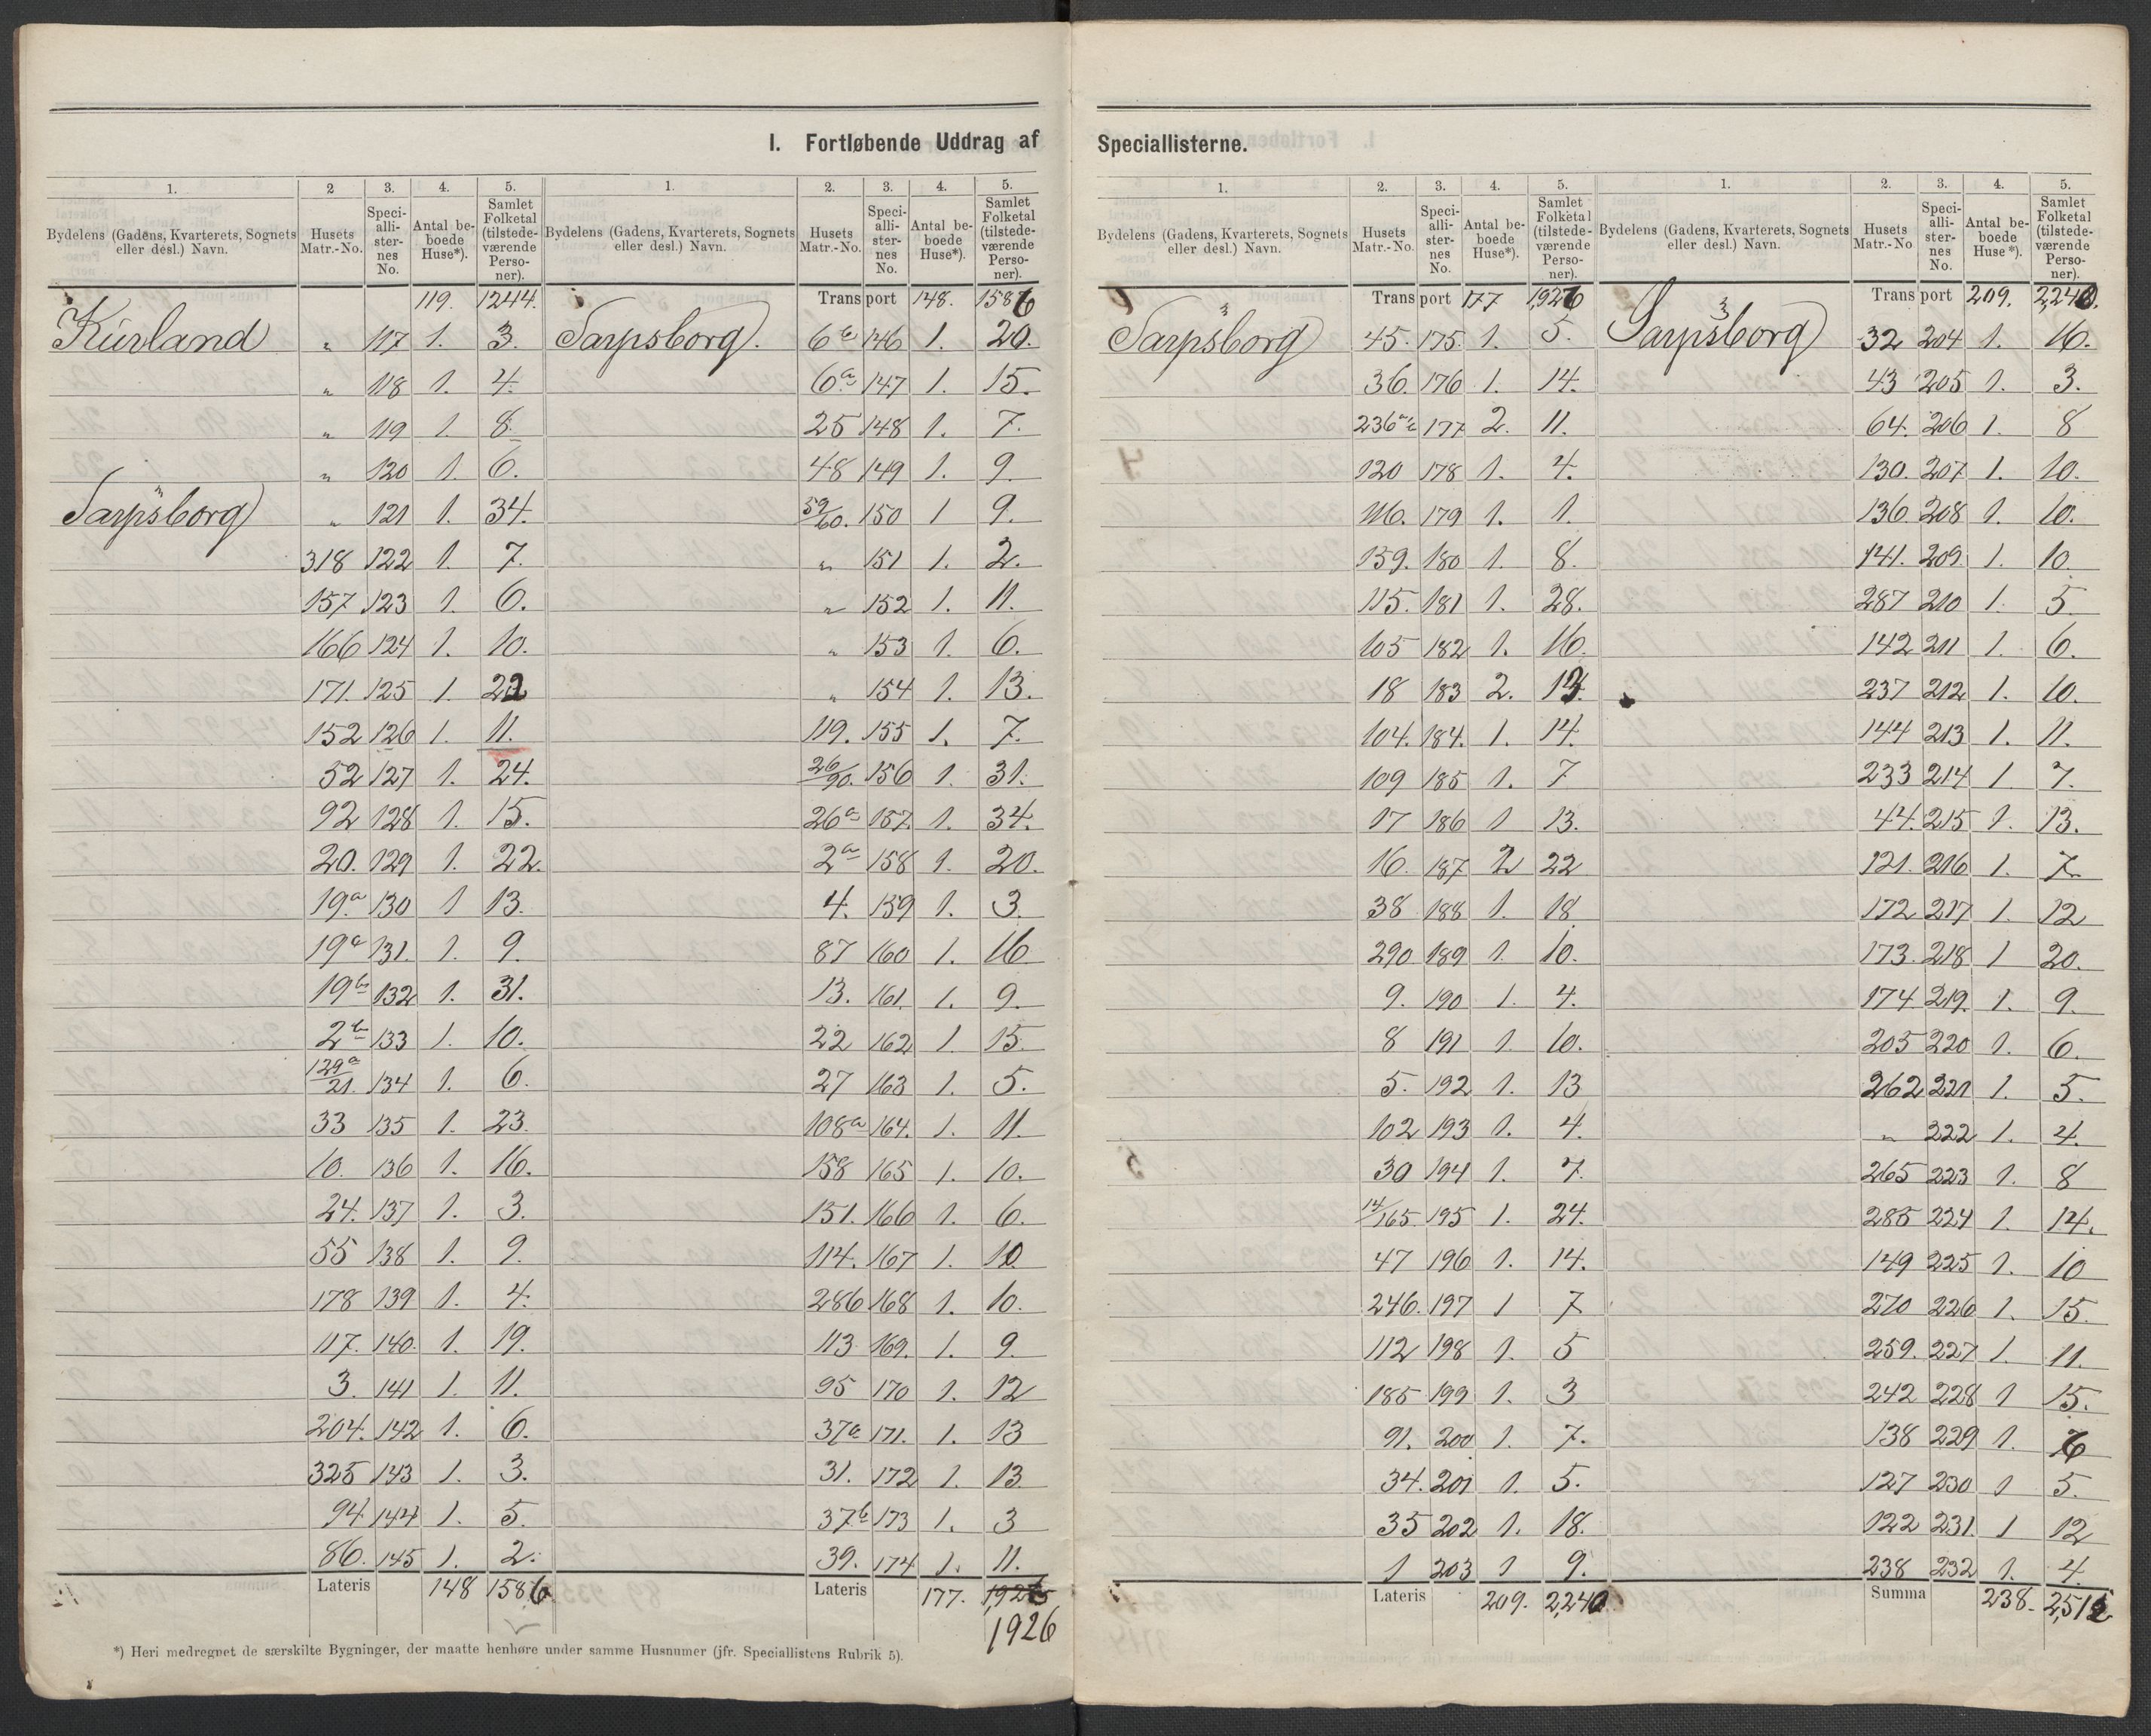 I. Fortløbende Uddrag af Speciallisterne.
1. 2 3. 4. 5.
Bydelens (Gadens, Kvarterets, Sognets eller desl.) Navn. Husets Matr.-No. Speciallisternes No. Antal beboede Huse*). Samlet Folketal (tilstedeværende Personer).
119. 1244.
Kurland " 117 1. 3.
" 118 1. 4.
" 119 1. 8.
" 120 1. 6.
Sarpsborg " 121 1. 34.
318 122 1. 7.
157 123 1. 6.
166 124 1. 10.
171. 125 1. 22
152 126 1. 11.
52 127 1. 24.
92 128 1. 15.
20. 129 1. 22.
19a 130 1 13.
19a 131. 1. 9.
19b 132 1. 31.
2b 133 1. 10.
129a/21. 134 1. 6.
33 135 1. 23.
10. 136 1. 16.
24. 137 1. 3.
55 138 1. 9.
178 139 1. 4.
117. 140. 1. 19.
3. 141 1. 11.
204. 142 1. 6.
325 143 1. 3.
94 144 1. 5.
86. 145 1. 2.
Lateris 148 1586
1. 2. 3. 4. 5.
Bydelens (Gadens, Kvarterets, Sognets eller desl.) Navn. Husets Matr.-No. Speciallisternes No. Antal beboede Huse*). Samlet Folketal (tilstedeværende Personer).
Transport 148. 1586
Sarpsborg. 6b 146 1. 20.
6a 147 1. 15.
25 148 1. 7.
48 149 1. 9.
59/60. 150 1 9.
" 151 1. 2.
" 152 1. 11.
" 153 1. 6.
" 154 1. 13.
119. 155 1. 7.
26/90. 156 1. 31.
26a 157. 1. 34.
2a 158 1. 20.
4. 159 1. 3.
87 160 1. 16
13. 161. 1. 9.
22 162 1. 15.
27 163 1. 5.
108a 164. 1. 11.
158 165 1. 10.
151. 166 1. 6.
114. 167 1. 10
286 168 1. 10.
113 169. 1. 9.
95 170 1. 12
37a 171. 1. 13
31. 172 1. 13
37b 173 1. 3
39. 174 1. 11.
Lateris 177.
1926
*) Heri medregnet de særskilte Bygninger, der maatte henhøre under samme Husnumer (jfr. Speciallistens Rubrik 5).
1. 2. 3. 4. 5.
Bydelens (Gadens, Kvarterets, Sognets eller desl.) Navn. Husets Matr.-No. Speciallisternes No. Antal beboede Huse*). Samlet Folketal (tilstedeværende Personer).
Transport 177 1,926
Sarpsborg 45. 175. 1. 5.
36. 176 1. 14.
236 177 2. 11.
120 178 1. 4.
116. 179 1. 1.
159. 180 1. 8.
115. 181 1. 28.
105 182 1. 16.
18 183 2. 13.
104. 184. 1. 14.
109 185 1. 7
17 186 1 13.
16. 187 2 22
38 188 1. 18
290 189 1. 10.
9. 190 1. 4.
8 191 1. 10.
5. 192 1. 13
102 193 1. 4.
30 194 1. 7.
14/165. 195 1. 24.
47 196 1. 14.
246. 197 1 7
112 198 1. 5
185 199 1. 3
91. 200 1. 7.
34. 201 1. 5.
35 202 1. 18.
1 203 1 9.
Lateris 209. 2,240
1. 2. 3. 4. 5.
Bydelens (Gadens, Kvarterets, Sognets eller desl.) Navn. Husets Matr.-No Speciallisternes No. Antal beboede Huse*). Samlet Folketal (tilstedeværende Personer).
Transport 209. 2,240.
Sarpsborg 32 204 1. 16.
43 205 1. 3.
64. 206 1. 8
130. 207 1. 10.
136 208 1. 10.
141. 209. 1. 10.
287 210 1. 5.
142 211 1. 6.
237 212 1. 10.
144 213 1. 11.
233 214 1 7.
44. 215 1. 13.
121. 216 1. 7.
172 217 1. 12
173. 218 1 20.
174 219. 1. 9.
205 220 1. 6.
262 221 1. 5.
" 222 1. 4.
265 223 1. 8
285 224 1. 14.
149 225 1. 10
270 226 1. 15.
259. 227 1. 11.
242 228 1 15.
138 229 1. 6
127 230 1 5.
122 231. 1 12
238 232 1. 4.
Summa 238. 2,512